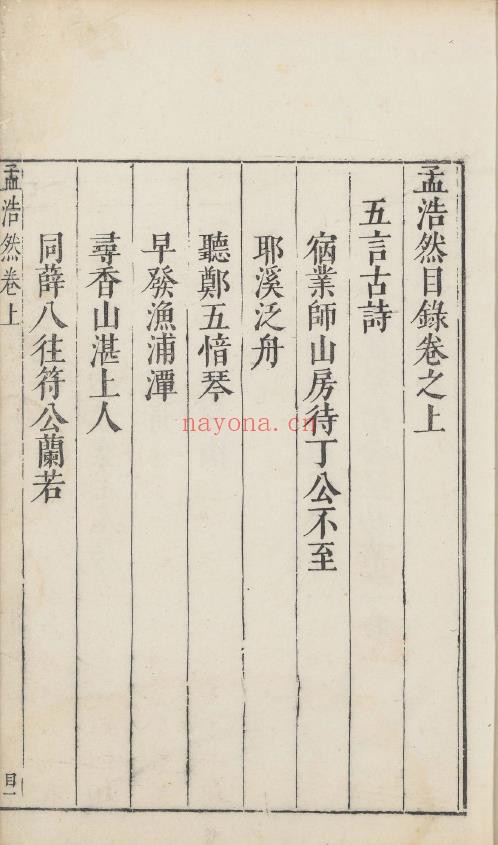 孟浩然目錄卷之上
五言古詩
宿業師山房待丁公不至
耶溪泛舟
聽鄭五愔琴
早發漁浦潭
尋香山湛上人
同薛八往符公蘭若
孟浩然卷上
目一
nayona.cn